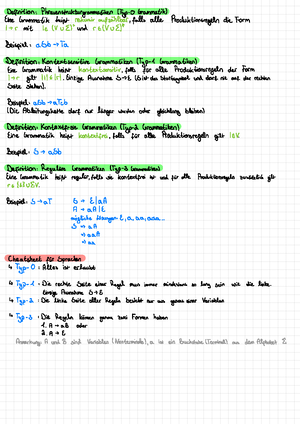 Definition: Phrasenstrukturgrammatiken (Typ-0 Grammatik)
Eine Grammatik heißt rekursiv aufzählbar, falls alle Produktionsregeln die Form
l → r mit l ∈ (V ∪ Σ)⁺ und r ∈ (V ∪ Σ)*
Beispiel: aSb → Ta
Definition: Kontextsensitive Grammatiken (Typ-1 Grammatiken)
Eine Grammatik heißt kontextsensitiv, falls für alle Produktionsregeln der Form
l → r gilt |l| ≤ |r|. Einzige Ausnahme S → ε (S ist das Startsymbol und darf nie auf der rechten
Seite stehen).
Beispiel: aSb → aTcb
(Die Ableitungskette darf nur länger werden oder gleichlang bleiben)
Definition: Kontextfreie Grammatiken (Typ-2 Grammatiken)
Eine Grammatik heißt kontextfrei, falls für alle Produktionsregeln gilt l ∈ V.
Beispiel: S → aSb
Definition: Reguläre Grammatiken (Typ-3 Grammatiken)
Eine Grammatik heißt regulär, falls sie kontextfrei ist und für alle Produktionsregeln zusätzlich gilt
Beispiel: S → aT S → ε | aA
A → aA | ε
mögliche Lösungen: ε, a, aa, aaa...
S → aA
→ aaA
→ aa
Cheatsheet für Sprachen
↳ Typ-0: Alles ist erlaubt
↳ Typ-1: Die rechte Seite einer Regel muss immer mindestens so lang sein wie die linke.
Einzige Ausnahme S → ε
↳ Typ-2: Die linke Seite aller Regeln besteht nur aus genau einer Variablen
↳ Typ-3: Die Regeln können genau zwei Formen haben
1. A → aB oder
2. A → ε
Anmerkung: A und B sind Variablen (Nichtterminale), a ist ein Buchstabe (Terminal) aus dem Alphabet Σ